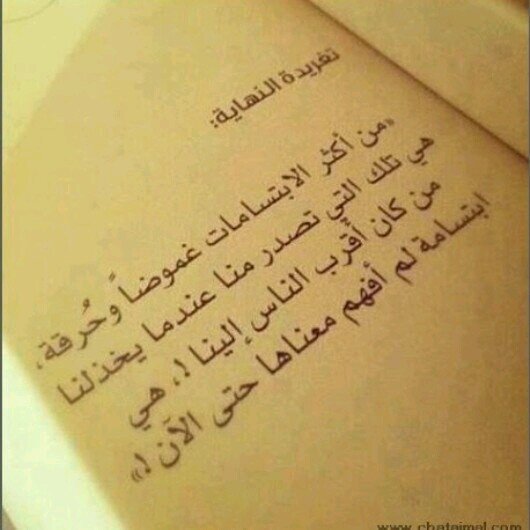 تغريدة النهاية:
«من أكثر الابتسامات غموضاً وحُرقة،
هي تلك التي تصدر منا عندما يخذلنا
من كان أقرب الناس إلينا !، هي
ابتسامة لم أفهم معناها حتى الآن !»
www.chatajmal.com